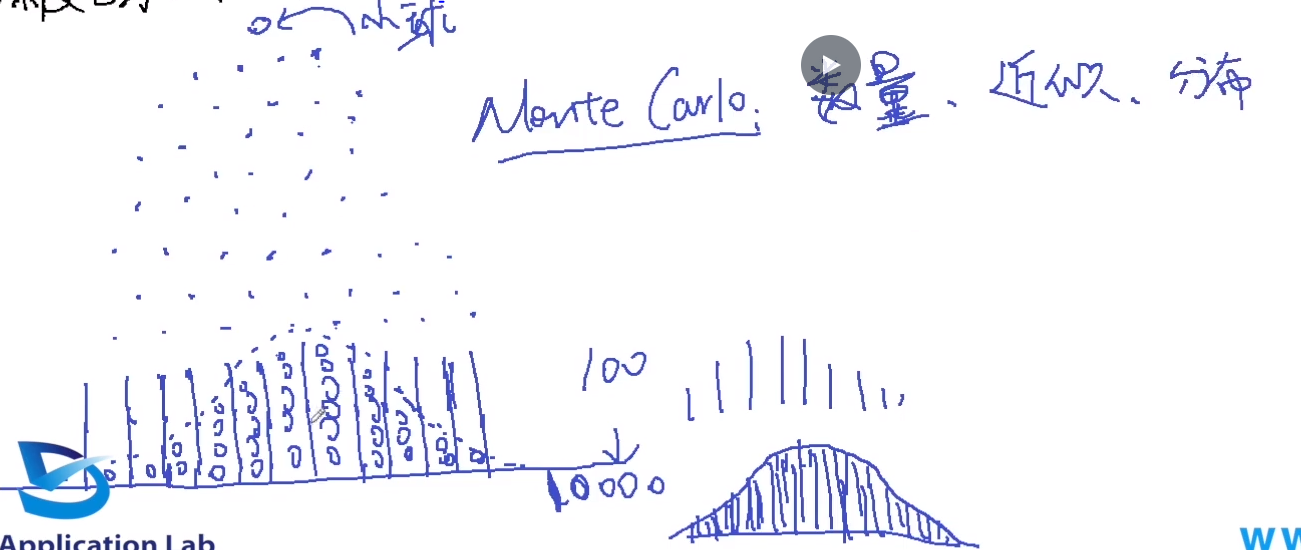 小球
Monte Carlo: 数量、近似、分布
100
10000
Application Lab